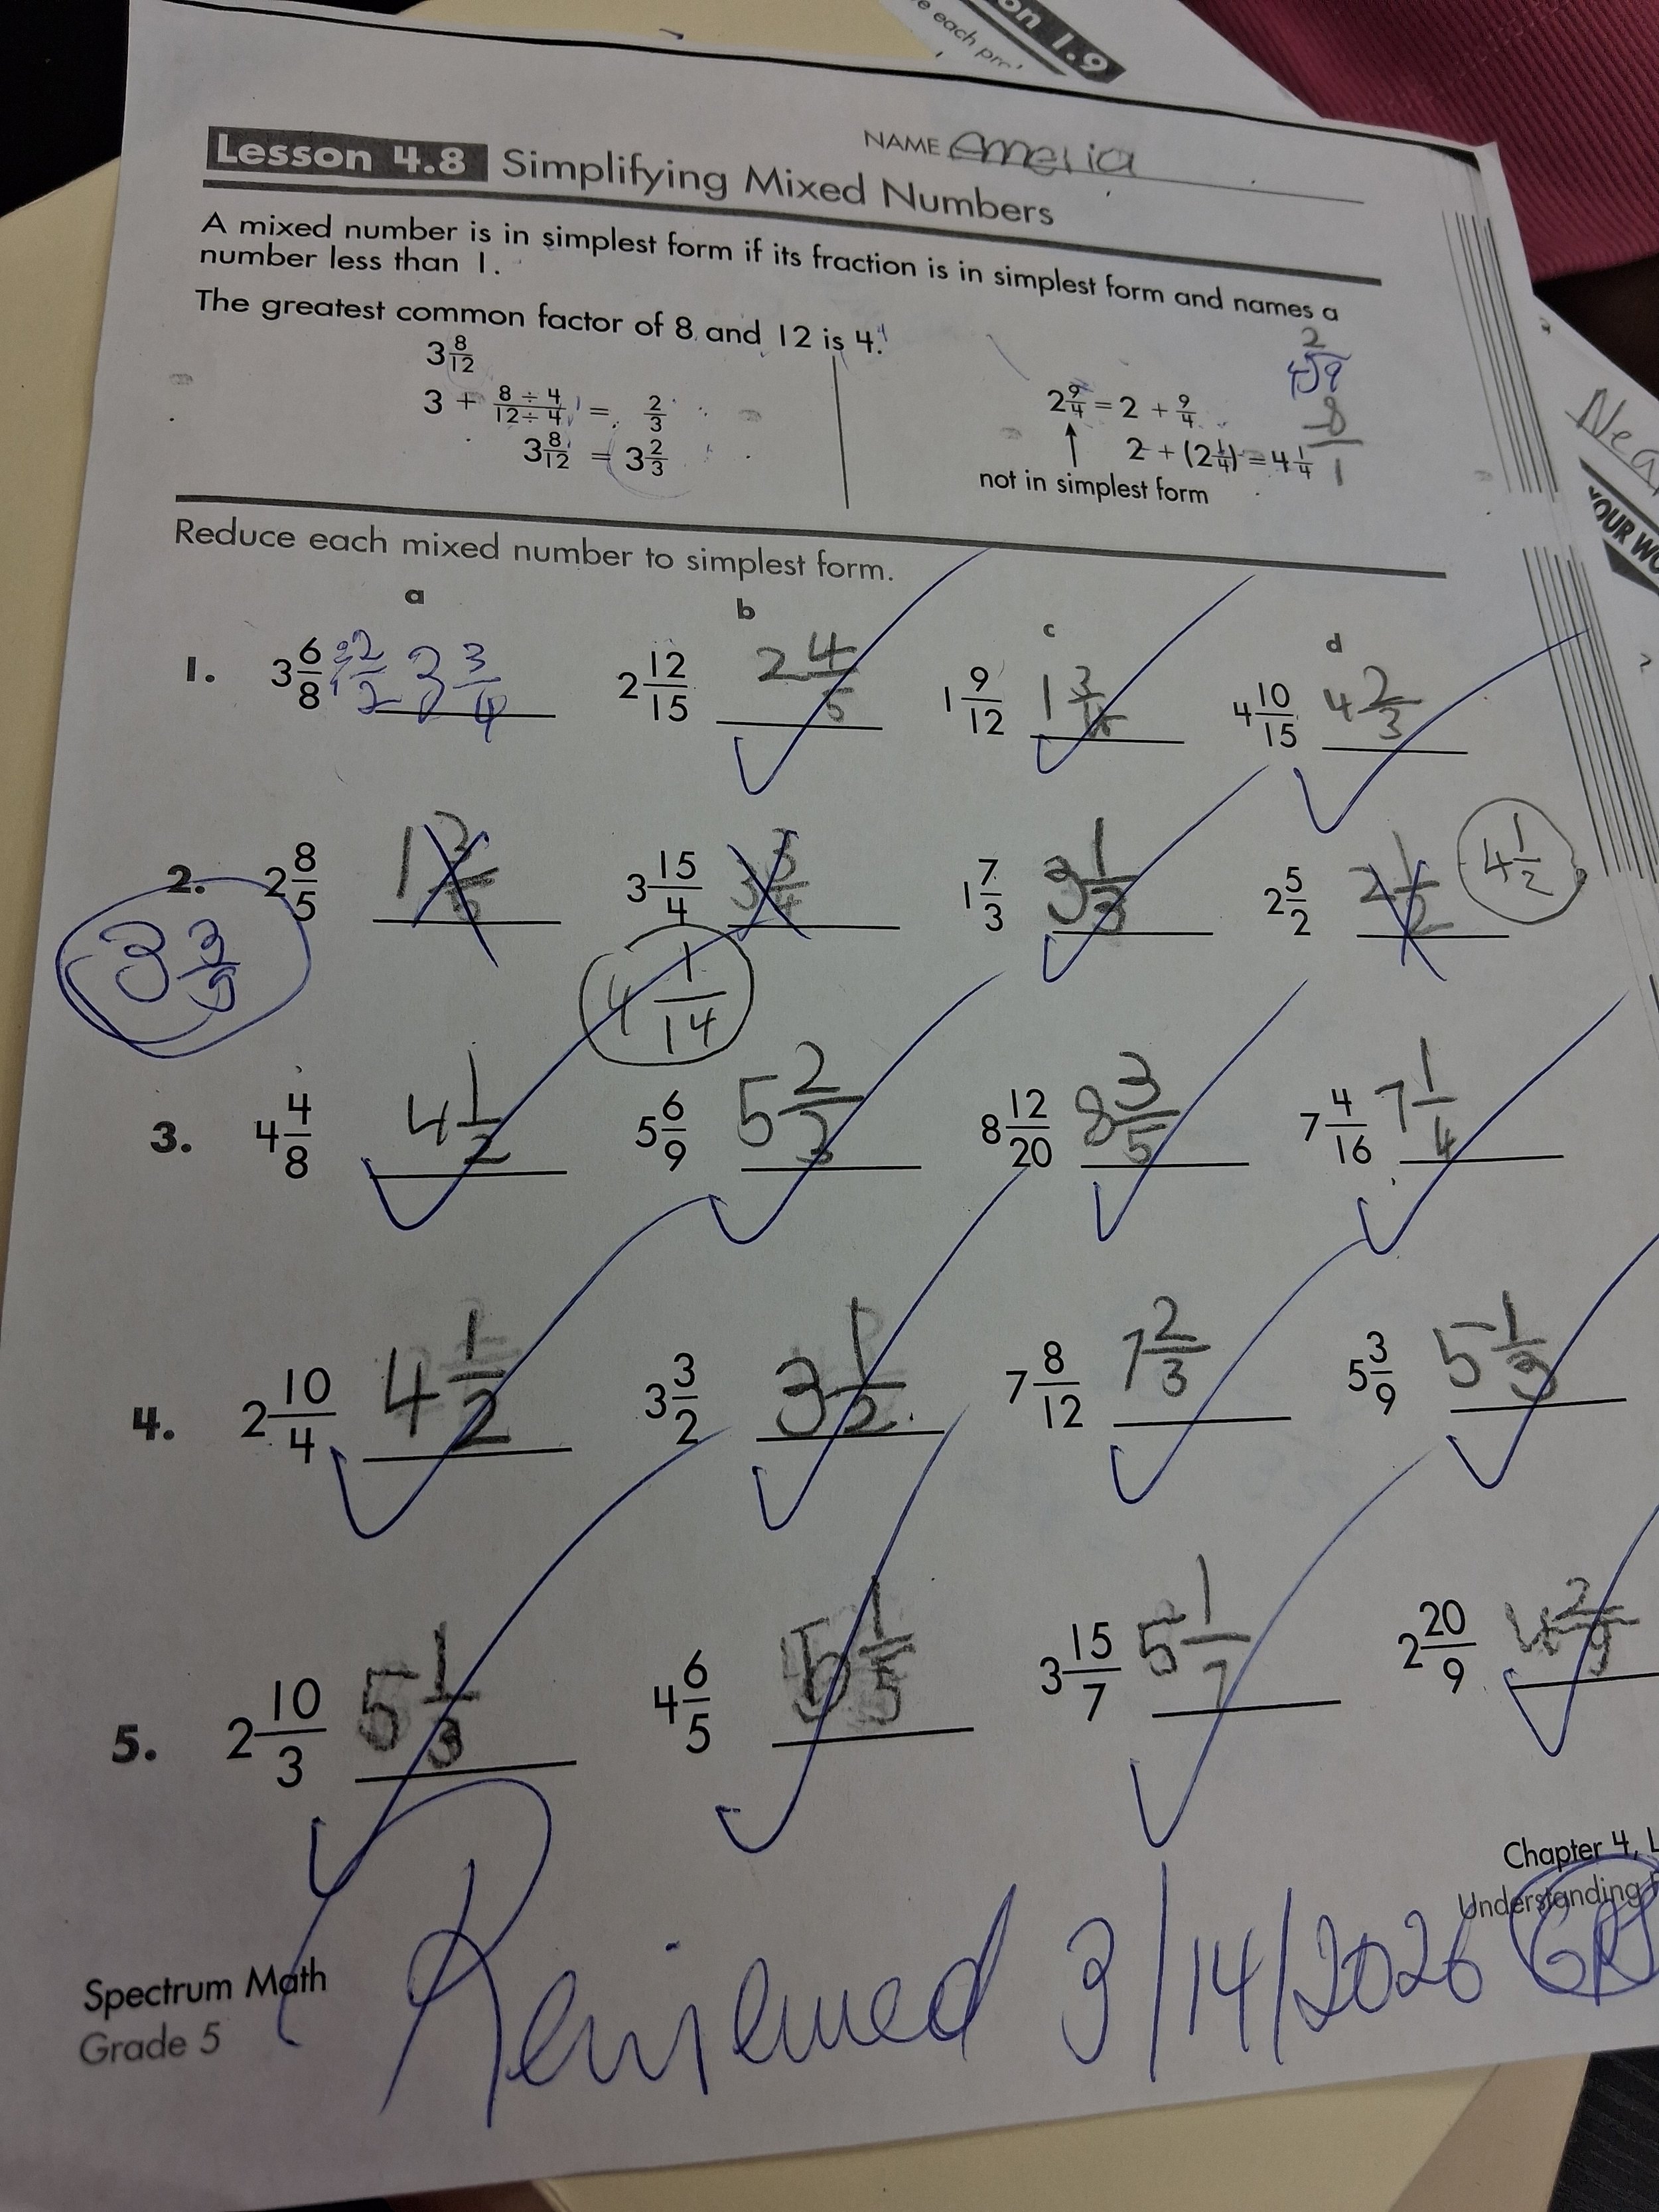 on 1.9
e each pro
NAME Amelia
Lesson 4.8 Simplifying Mixed Numbers
A mixed number is in simplest form if its fraction is in simplest form and names a
number less than 1.
The greatest common factor of 8 and 12 is 4.
3 8/12
3 + 8 ÷ 4/12 ÷ 4 = 2/3
3 8/12 = 3 2/3
2 9/4 = 2 + 9/4
2 + (2 1/4) = 4 1/4
not in simplest form
2
4)9
-8
1
Nea
YOUR WO
Reduce each mixed number to simplest form.
a b c d
1. 3 6/8 ÷2/÷2 3 3/4 2 12/15 2 4/5 1 9/12 1 3/4 4 10/15 4 2/3
2. 2 8/5 1 3/5 3 15/4 3 3/4 1 7/3 3 1/3 2 5/2 2 1/2 4 1/2
3 3/5 4 1/14
3. 4 4/8 4 1/2 5 6/9 5 2/3 8 12/20 8 3/5 7 4/16 7 1/4
4. 2 10/4 4 1/2 3 3/2 3 1/2 7 8/12 7 2/3 5 3/9 5 1/3
5. 2 10/3 5 1/3 4 6/5 5 1/5 3 15/7 5 1/7 2 20/9 4 2/9
Chapter 4, L
Understanding F
Spectrum Math
Grade 5
Reviewed 3/14/2026